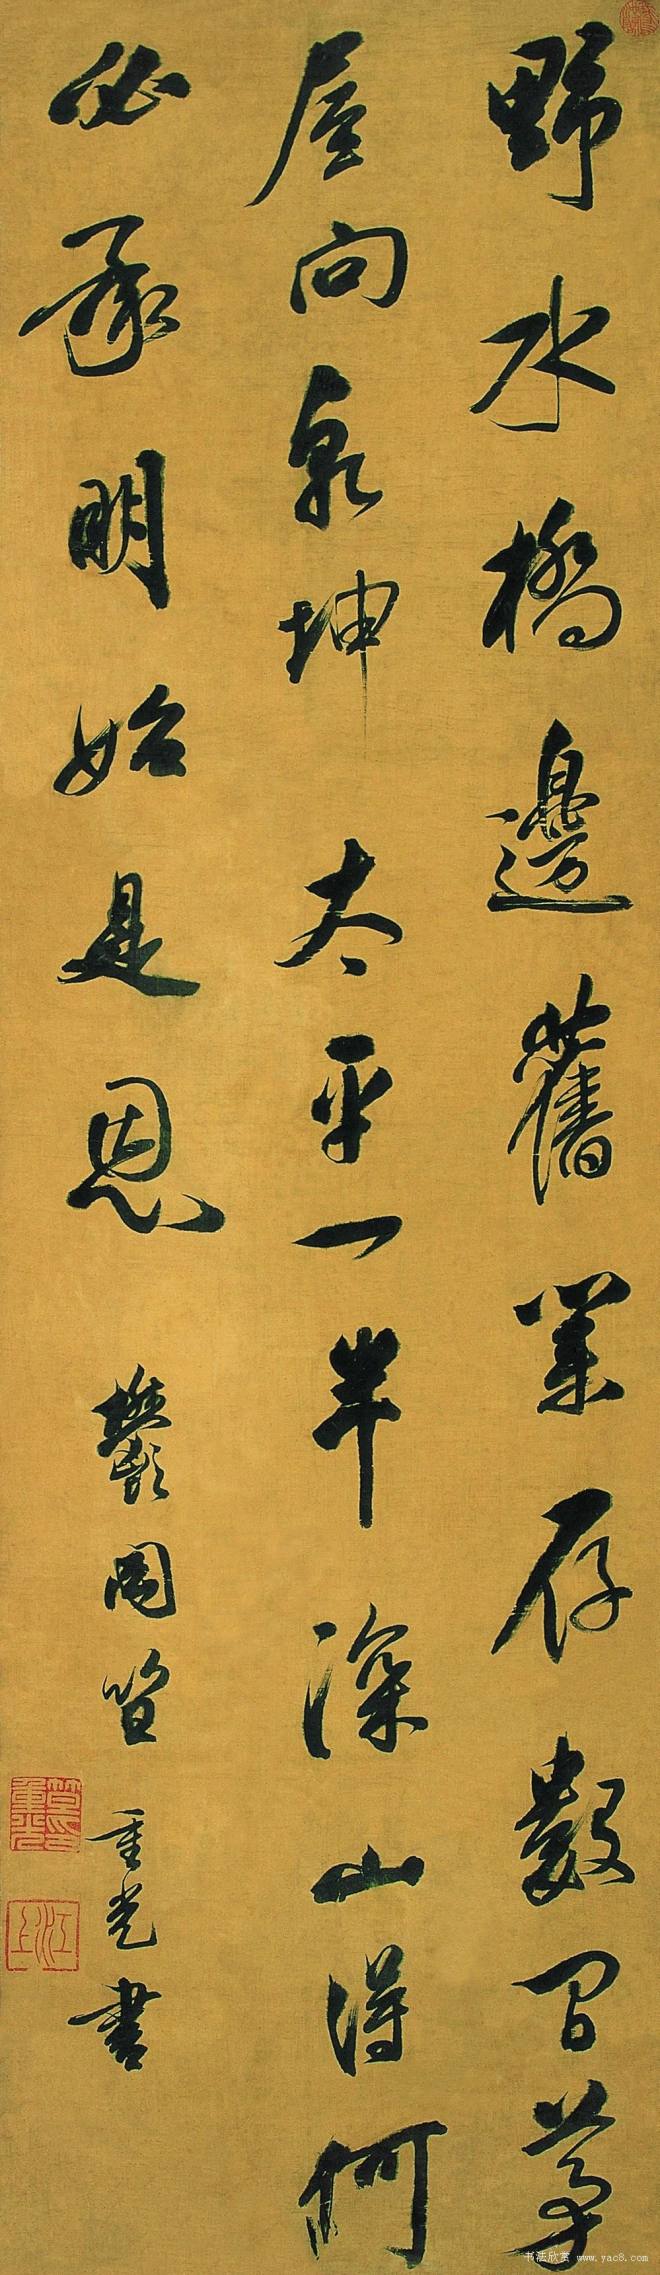 野水橋邊舊業存數間茅
屋向乾坤太平一半深山得何
必承明始是恩
鬱岡笪重光書
笪重光印
江上
书法欣赏 www.yac8.com